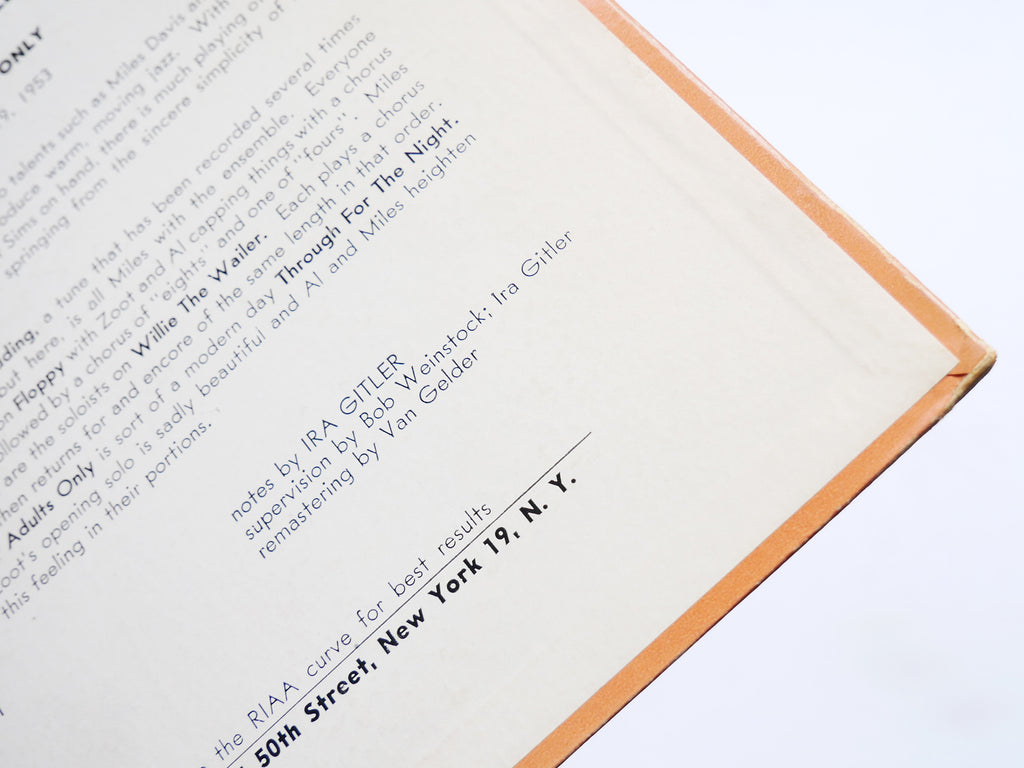 ONLY
9, 1953
talents such as Miles Davis
warm, moving jazz. With
Sims on hand, there is much playing
springing from the sincere simplicity of
a tune that has been recorded several times
here, is all Miles with the ensemble. Everyone
Floppy with Zoot and Al capping things with a chorus
by a chorus of "eights" and one of "fours". Miles
are the soloists on Willie The Wailer. Each plays a chorus
returns for and encore of the same length in that order.
Adults Only is sort of a modern day Through For The Night.
opening solo is sadly beautiful and Al and Miles heighten
this feeling in their portions.
notes by IRA GITLER
supervision by Bob Weinstock; Ira Gitler
remastering by Van Gelder
the RIAA curve for best results
50th Street, New York 19, N. Y.